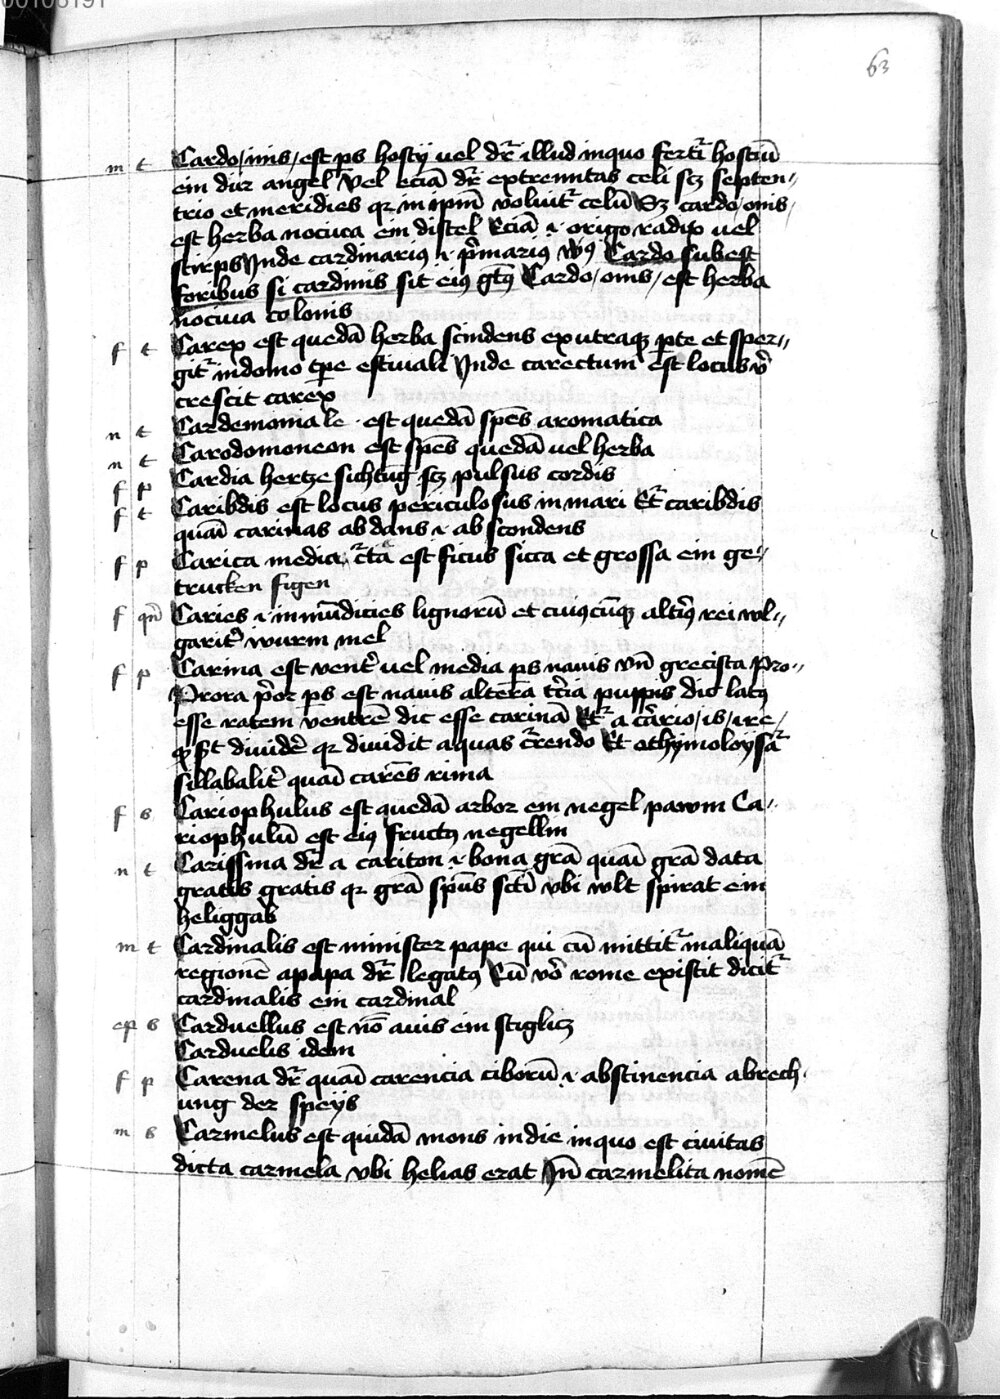 00108191
63
m t Cardo / inis / est ps hostij uel dr̄ illud inquo fert᷑ hostiū
ein dür angel Vel eciā dr̄ extremitas celi sꝫ septen⸗
trio et meridies qꝛ in ip̄m voluit᷑ celū Sꝫ cardo / onis /
est herba nociua ein distel Eciā ⁊ origo radix uel
stirps Inde cardinariꝰ ⁊ p̄mariꝰ Cardo subest
foribus si cardinis sit eiꝰ gtꝰ Cardo / onis / est herba
nociua colonis
f t Carex est quedā herba scindens ex utraqꝫ ꝑte et sper⸗
git᷑ in domo tꝑe estiuali Inde carectum est locus v̄
crescit carex
n t Cardemomale est quedā spēs aromatica
n t Carodomoneon est spēs quedā uel herba
f p Cardia hertze sichtug sꝫ pulsus cordis
f t Caribdis est locus periculosus in mari Et᷑ caribdis
quaī carinas abdans ⁊ abscondens
f p Carica media c̄ta est ficus sicca et grossa ein ge⸗
trucken figen
f qn̄ Caries ⁊ inmūdicies lignorū et cuiꝰcūqꝫ altiꝰ rei wl⸗
garit᷑ wurm mel
f p Carina est vent᷑ uel media ps nauis vn̄ grecista Pro⸗
Prora p̄or ps est nauis altera t᷑cia puppis dic latꝰ
esse ratem ventrē dic esse carinā Et᷑ a cārio / is / ire /
qꝫ st diuidē qꝛ diuidit aquas c᷑rendo Et ethijmoloijsat᷑
sillabalit᷑ quaī carēs rima
f s Cariophulus est quedā arbor ein negel pawm Ca⸗
riophulū est eiꝰ fructꝰ negellin
n t Carissma dr̄ a cariton ⁊ bona grā quaī grā data
gratis gratis qꝛ grā spūs sctī vbi wlt spirat ein
heliggab
m t Cardinalis est minister pape qui cū mittit᷑ in aliquā
regionē a papa dr̄ legatꝰ Cū vō rome existit dicit᷑
cardinalis ein cardinal
ep s Carduellus est nō auis ein stiglicz
Carduelis idem
f p Carena dr̄ quaī carencia ciborū ⁊ abstinencia abrech⸗
ung der speijs
m s Carmelus est quidā mons indie inquo est ciuitas
dicta carmela vbi helias erat In̄ carmelita nomē